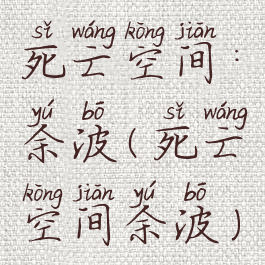 sǐ wáng kōng jiān
死亡空间：
yú bō sǐ wáng
余波(死亡
kōng jiān yú bō
空间余波)